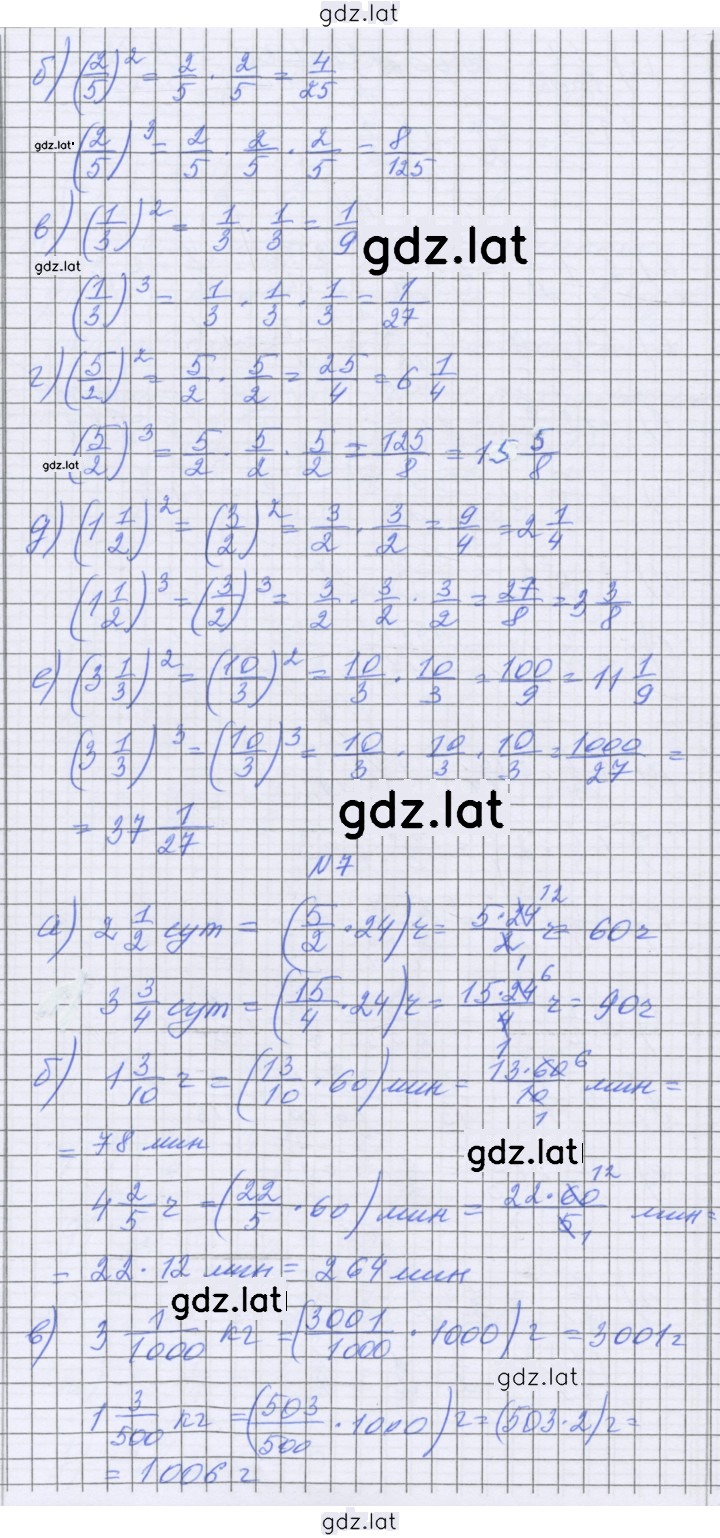 gdz.lat
б) (2/5)^2 = 2/5 · 2/5 = 4/25
gdz.lat
(2/5)^3 = 2/5 · 2/5 · 2/5 = 8/125
в) (1/3)^2 = 1/3 · 1/3 = 1/9
gdz.lat
gdz.lat
(1/3)^3 = 1/3 · 1/3 · 1/3 = 1/27
г) (5/2)^2 = 5/2 · 5/2 = 25/4 = 6 1/4
(5/2)^3 = 5/2 5/2 · 5/2 = 125/8 = 15 5/8
gdz.lat
д) (1 1/2)^2 = (3/2)^2 = 3/2 · 3/2 = 9/4 = 2 1/4
(1 1/2)^3 = (3/2)^3 = 3/2 · 3/2 · 3/2 = 27/8 = 3 3/8
е) (3 1/3)^2 = (10/3)^2 = 10/3 · 10/3 = 100/9 = 11 1/9
(3 1/3)^3 = (10/3)^3 = 10/3 · 10/3 · 10/3 = 1000/27 =
gdz.lat
= 37 1/27
N7
а) 2 1/2 сут = (5/2 · 24) ч = 5·24/2 ч = 60 ч
3 3/4 сут = (15/4 · 24) ч = 15·24/4 ч = 90 ч
б) 1 3/10 ч = (13/10 · 60) мин = 13·60/10 мин =
= 78 мин
gdz.lat
4 2/5 ч = (22/5 · 60) мин = 22·60/5 мин =
= 22 · 12 мин = 264 мин
gdz.lat
в) 3 1/1000 кг = (3001/1000 · 1000) г = 3001 г
gdz.lat
1 3/500 кг = (503/500 · 1000) г = (503·2) г =
= 1006 г
gdz.lat